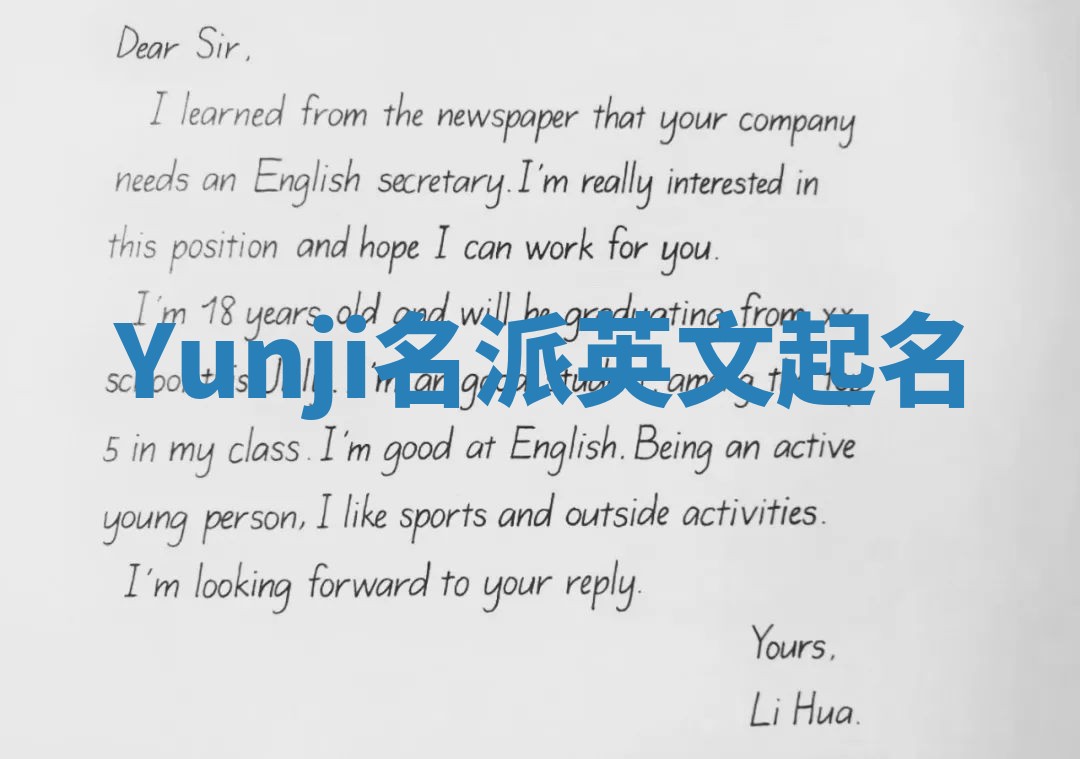 Dear Sir,
I learned from the newspaper that your company
needs an English secretary. I'm really interested in
this position and hope I can work for you.
I'm 18 years old and will be graduating from xx
Yunji名派英文起名
5 in my class. I'm good at English. Being an active
young person, I like sports and outside activities.
I'm looking forward to your reply.
Yours,
Li Hua.